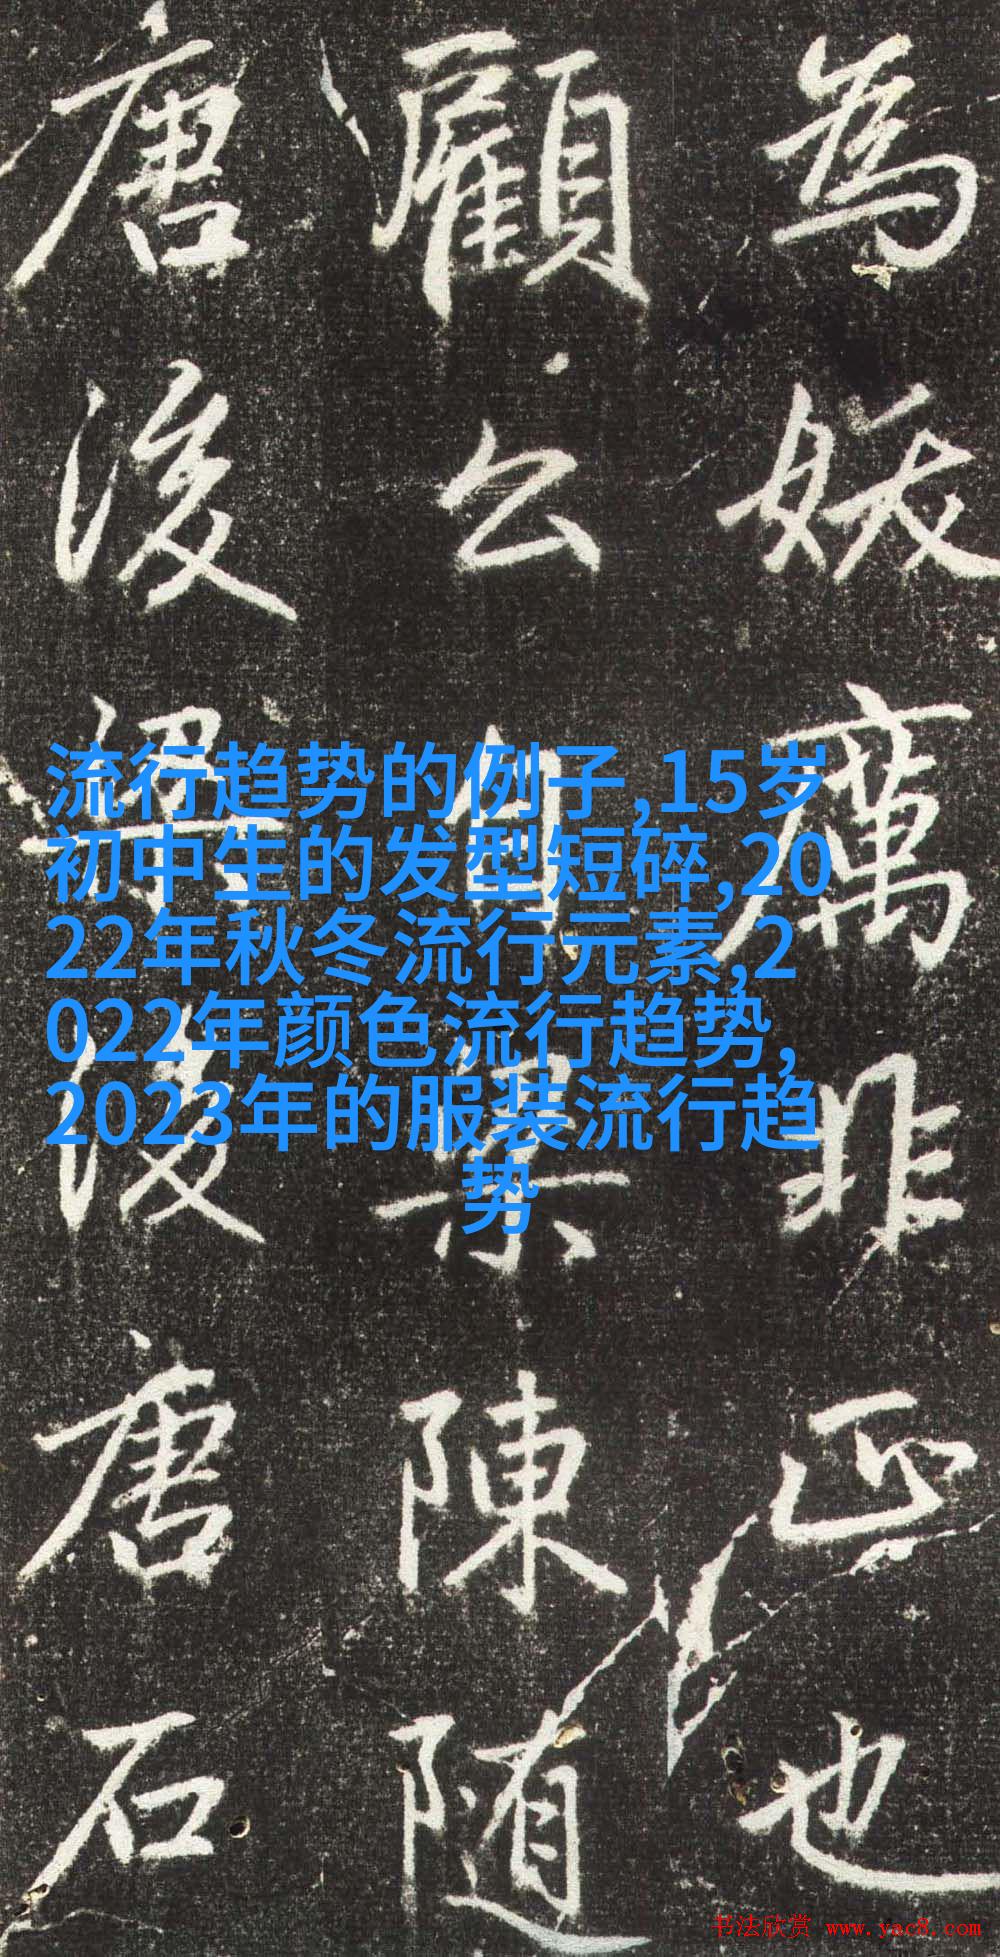 為妖厲非正也
顧公自梁陳随
唐後梁後唐石
流行趋势的例子,15岁
初中生的发型短碎,20
22年秋冬流行元素,2
022年颜色流行趋势,
2023年的服装流行趋
势
书法欣赏 www.yac8.com